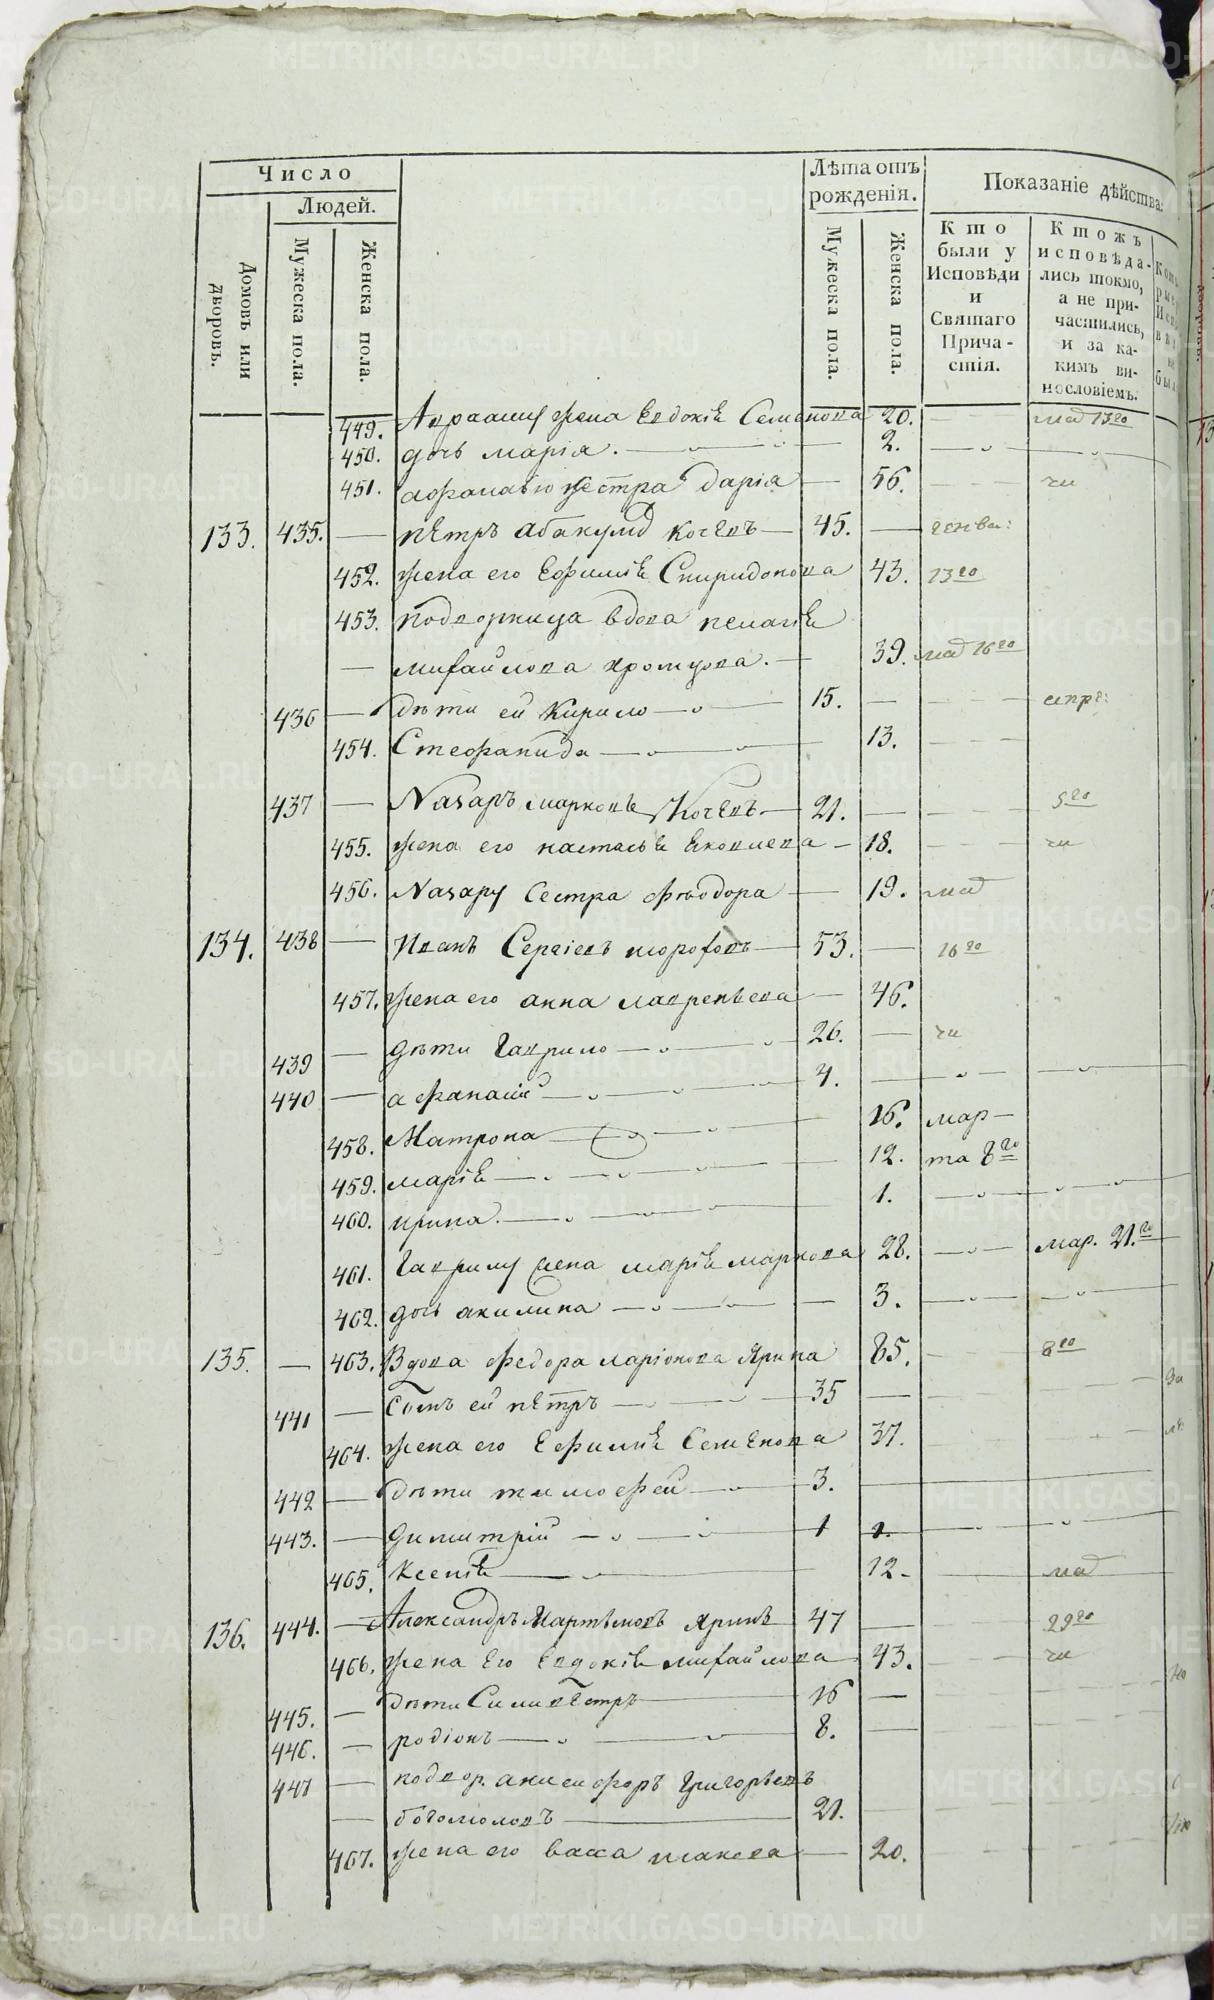 Число
Людей.
Домовъ или дворовъ.
Мужеска пола.
Женска пола.
Лѣта отъ рожденія.
Мужеска пола.
Женска пола.
Показаніе дѣйства:
Кто были у Исповѣди и Святаго Прича-стія.
Ктожъ исповѣда-лись токмо, а не при-частились, и за ка-кимъ ви-нословіемъ.
449. Авраамиу жена Евдокія Семенова 20. маѧ 13го
450. дочь марія. 2.
451. афанасію сестра Дарія 56.
133. 435. пЕтръ абакумо Кочевъ 45. генва:
452. жена его Ефимія Спиридонова 43. 13го
453. подворница вдова пелагія
михайлова хромцова. 39. маѧ 16го
436 дѣти ей Кирило 15. апрѣ:
454. Стефанида 13.
437 Назаръ марковъ Кочевъ 21. 5го
455. жена его настасья яковлева 18. чи
456. Назару Сестра Фѣодора 19. маѧ
134. 438 Иванъ Сергіевъ шороховъ 53. 16го
457. жена его анна лаврентьева 46.
439 дѣти Гаврило 26. чи
440 афанасій 4.
458. Матрона 16. мар-
459. марія 12. та 8го
460. ирина. 1.
461. Гаврилу жена марія маркова 28. мар. 21.го
462. дочь акилина 3.
135. 463. Вдова Федора ларіонова Ярина 85. 8го
441 Сынъ ей пЕтръ 35 за
464. жена его Ефимія Семенова 37.
442 дѣти тимофей 3.
443. димитрій 1 1.
465. Ксенія 12. маѧ
136. 444. Александръ Мартемовъ Яринъ 47 29го
466. жена Его Евдокія михайлова 43. чи
445. дѣти Силивестръ 16
446. родіонъ 8.
447 подвор. анисифоръ Григорьевъ
богомоловъ 21.
467. жена его васса иванова 20.
METRIKI.GASO-URAL.RU